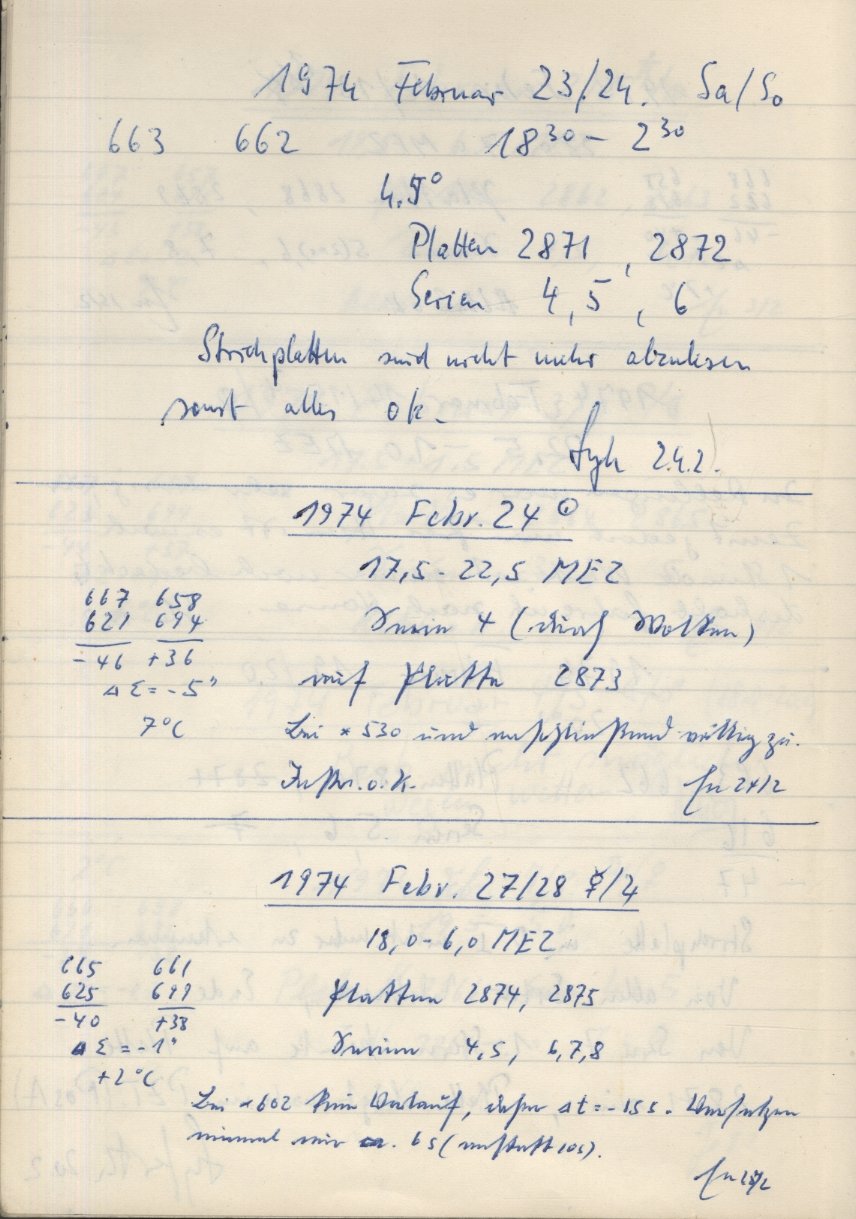 1974 Februar 23./24. Sa/So
663 662 18³⁰ – 2³⁰
4.5°
Platten 2871 , 2872
Serien 4, 5 , 6
Strichplatten sind nicht mehr abzulesen
sonst alles ok.
24.2.
1974 Febr. 24 ☉
17,5 - 22,5 MEZ
667 658
621 694
-46 +36
Serie 4 (durch Wolken)
auf Platte 2873
Δ Σ = -5"
7°C
Bei * 530 und anschließend völlig zu.
Instr. o.k. 24/2
1974 Febr. 27/28 ☿/♃
18,0 - 6,0 MEZ
665 661
625 699
-40 +38
Platten 2874, 2875
Δ Σ = -1"
Serien 4,5, 6,7,8
+2°C
Bei * 602 kein Vorlauf, daher Δt = -15s. Versetzen
minimal nur ca. 6s (anstatt 10s).
28/2